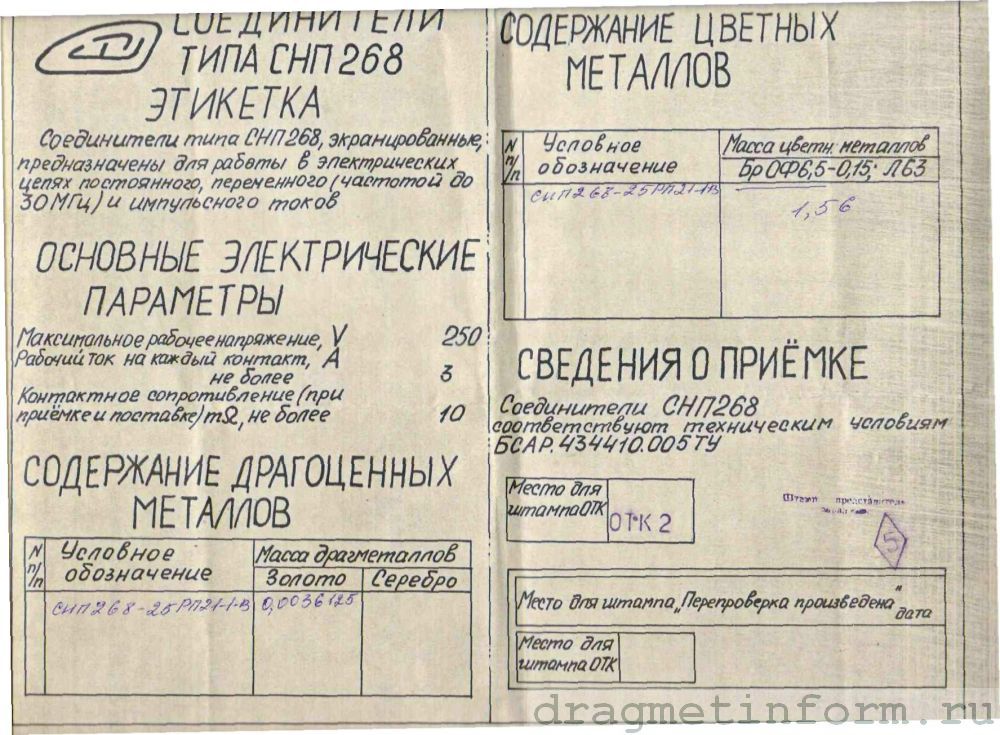 СОЕДИНИТЕЛИ
ТИПА СНП 268
ЭТИКЕТКА
Соединители типа СНП268, экранированные,
предназначены для работы в электрических
цепях постоянного, переменного (частотой до
30 МГц) и импульсного токов
ОСНОВНЫЕ ЭЛЕКТРИЧЕСКИЕ
ПАРАМЕТРЫ
Максимальное рабочее напряжение, V 250
Рабочий ток на каждый контакт, А
не более 3
Контактное сопротивление (при
приёмке и поставке) mΩ, не более 10
СОДЕРЖАНИЕ ДРАГОЦЕННЫХ
МЕТАЛЛОВ
N п/п Условное обозначение Масса драгметаллов
Золото Серебро
СНП268-25РП21-1-В 0,0036125
СОДЕРЖАНИЕ ЦВЕТНЫХ
МЕТАЛЛОВ
N п/п Условное обозначение Масса цветн. металлов
БрОФ6,5-0,15; Л63
СНП268-25РП21-1-В
1,56
СВЕДЕНИЯ О ПРИЁМКЕ
Соединители СНП268
соответствуют техническим условиям
БСАР.434410.005ТУ
Место для
штампа ОТК
ОТК 2
Штамп представителя
5
Место для штампа „Перепроверка произведена"
дата
Место для
штампа ОТК
dragmetinform.ru